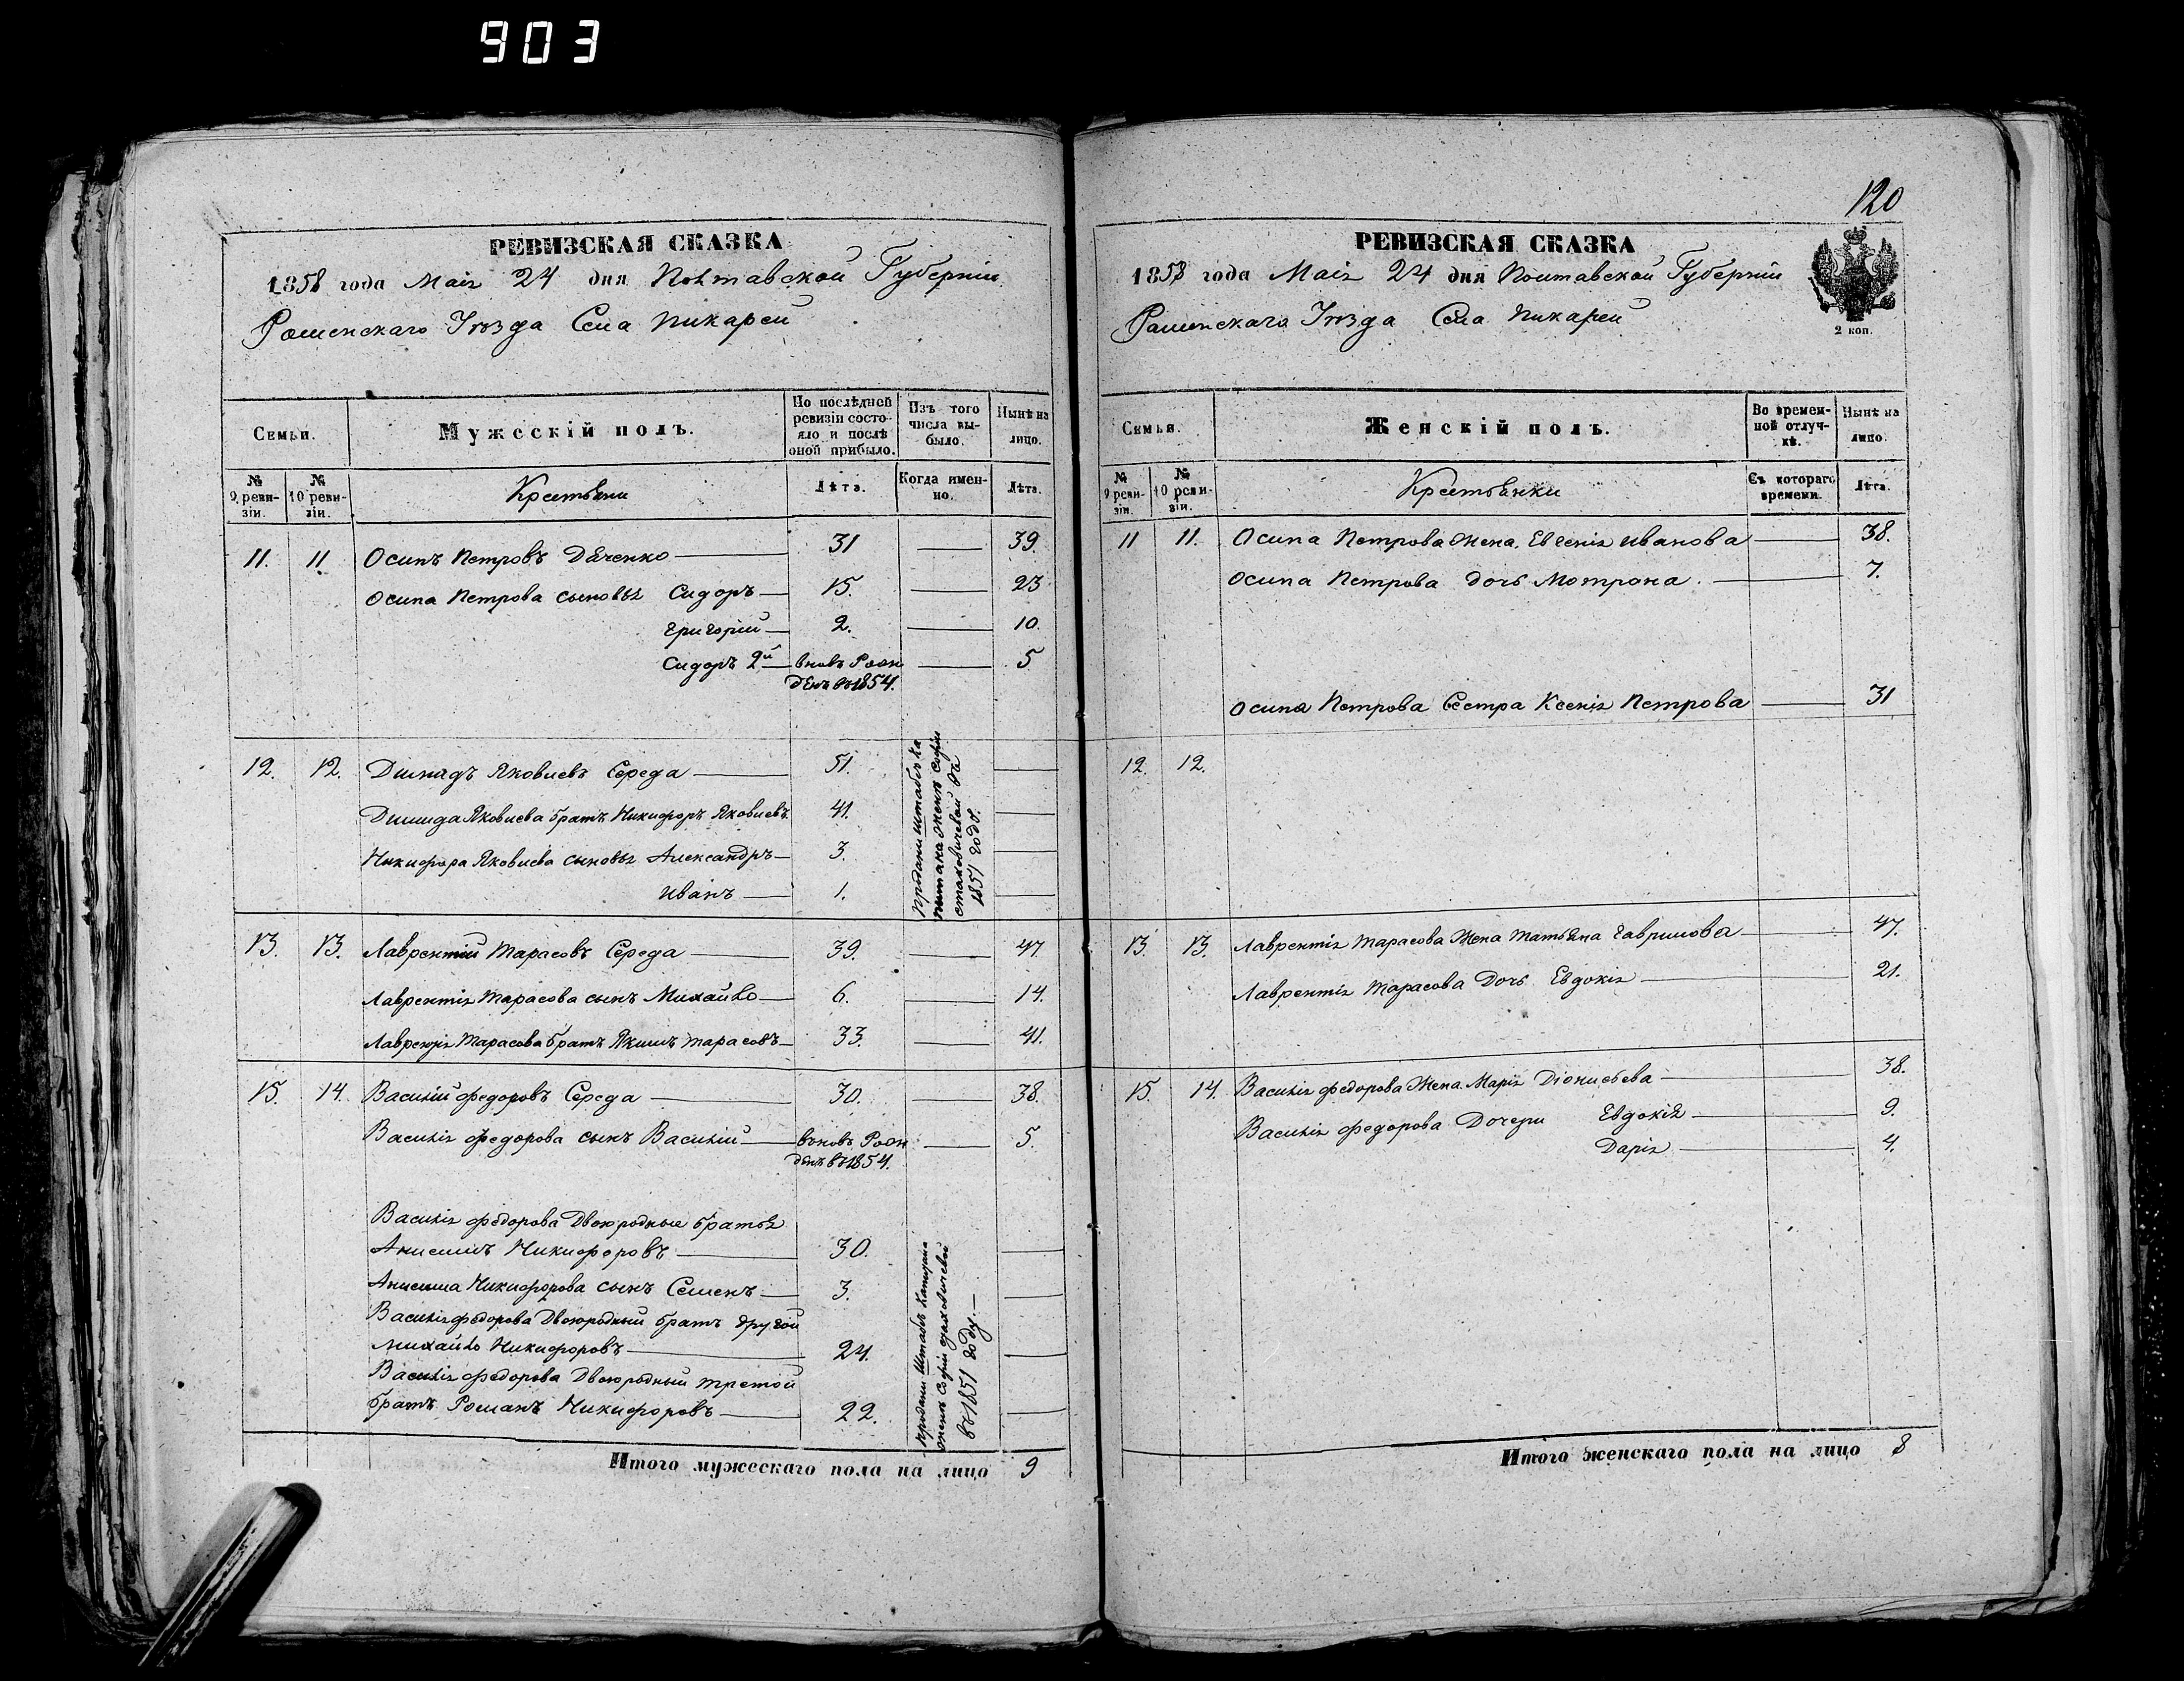 903
120
РЕВИЗСКАЯ СКАЗКА
1858 года Маія 24 дня Полтавской Губерніи
Роменскаго Уѣзда Села Пикарей
Семьи.
Мужескій полъ.
По послѣдней ревизіи состояло и послѣ оной прибыло.
Изъ того числа выбыло.
Нынѣ на лицо.
№ 9 ревизіи.
№ 10 ревизіи.
Крестьяни
Лѣта.
Когда именно.
Лѣта.
11. 11 Осипъ Петровъ Даченко 31 39
Осипа Петрова сыновья Сидоръ 15. 23
Григорій 2. 10.
Сидоръ 2й вновь Рожденъ въ 1854. 5
12. 12. Демидъ Яковлевъ Середа 51.
Демида Яковлева братъ Никифоръ Яковлевъ 41.
Никифора Яковлева сыновья Александръ 3.
Иванъ 1.
проданы штабсъ Ка
питана женѣ Софіи
въ
1851 годѣ.
13. 13. Лаврентій Тарасовъ Середа 39. 47
Лаврентія Тарасова сынъ Михайло 6. 14.
Лаврентія Тарасова братъ Якимъ Тарасовъ 33. 41.
15. 14. Василій Федоровъ Середа 30. 38.
Василія Федорова сынъ Василій вновь Рожденъ въ 1854. 5.
Василія Федорова Двоюродные братья
Анисимъ Никифоровъ 30.
Анисима Никифорова сынъ Семенъ 3.
Василія Федорова Двоюродный братъ другой
Михайло Никифоровъ 24.
Василія Федорова Двоюродный третой
братъ Романъ Никифоровъ 22.
проданы Штабсъ Капитана
женѣ Софіи
въ 1851 году.
Итого мужескаго пола на лицо 9
РЕВИЗСКАЯ СКАЗКА
1858 года Маія 24 дня Полтавской Губерніи
Роменскаго Уѣзда Села Пикарей
2 коп.
Семьи.
Женскій полъ.
Во временной отлучкѣ.
Нынѣ на лицо.
№ 9 ревизіи.
№ 10 ревизіи.
Крестьянки
Съ котораго времени.
Лѣта.
11 11. Осипа Петрова Жена Евгенія Иванова 38.
Осипа Петрова дочь Мотрона. 7.
Осипа Петрова Сестра Ксенія Петрова 31
12. 12.
13. 13. Лаврентія Тарасова Жена Татьяна Гаврилова 47.
Лаврентія Тарасова Дочь Евдокія 21.
15. 14. Василія Федорова Жена Марія Діонисьева 38.
Василія Федорова Дочери Евдокія 9.
Дарія 4.
Итого женскаго пола на лицо 8